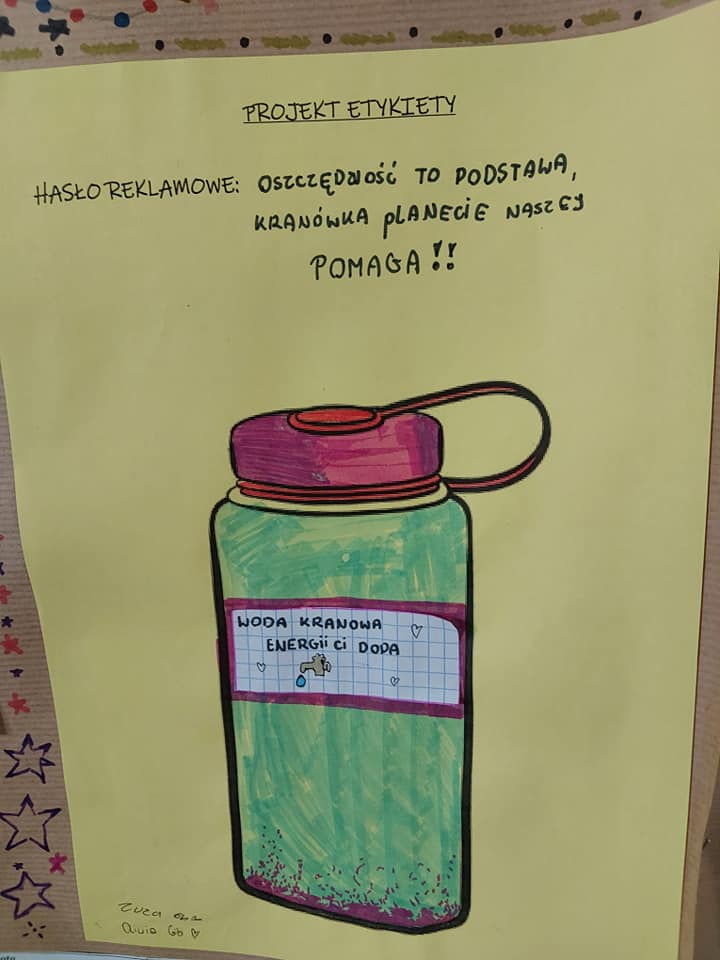 PROJEKT ETYKIETY
HASŁO REKLAMOWE: OSZCZĘDNOŚĆ TO PODSTAWA,
KRANÓWKA PLANECIE NASZEJ
POMAGA!!
WODA KRANOWA
ENERGII CI DODA
Zuza
6b ♡